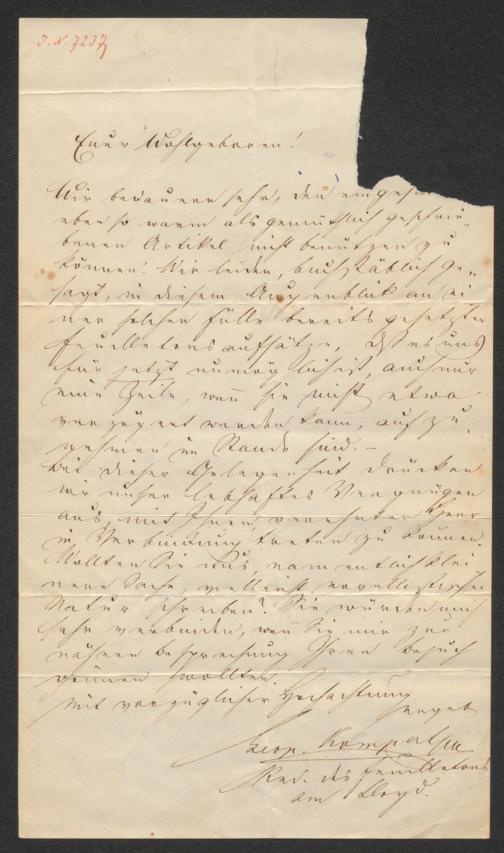 J. N. 7237
Euer Wohlgeboren!
Wir bedauern sehr, den
eben so warm als gemüthlich geschrie-
benen Artikel nicht benutzen zu
können! Wir leiden, buchstäblich ge-
sagt, in diesem Augenblick an ei
ner solchen Fülle bereits gesetzter
Feuilletonsaufsätze, daß es uns
für jetzt unmöglich ist, auch nur
eine Zeile, wenn sie nicht etwa
verzögert werden kann, aufzu-
nehmen im Stande sind. –
Bei dieser Gelegenheit drücken
wir unser lebhaftes Vergnügen
aus, mit Ihnen, verehrter Herr
in Verbindung treten zu können.
Wollten Sie uns, namentlich klei
nere Sache, vielleicht novellistischer
Natur schreiben? Sie würden mich
sehr verbinden, wenn Sie mir zur
nähern Besprechung Ihren Besuch
gönnen wollten.
Mit vorzüglicher Hochachtung
ergeb
Leop. Kompert
Red. des Feuilletons
am Lloyd.